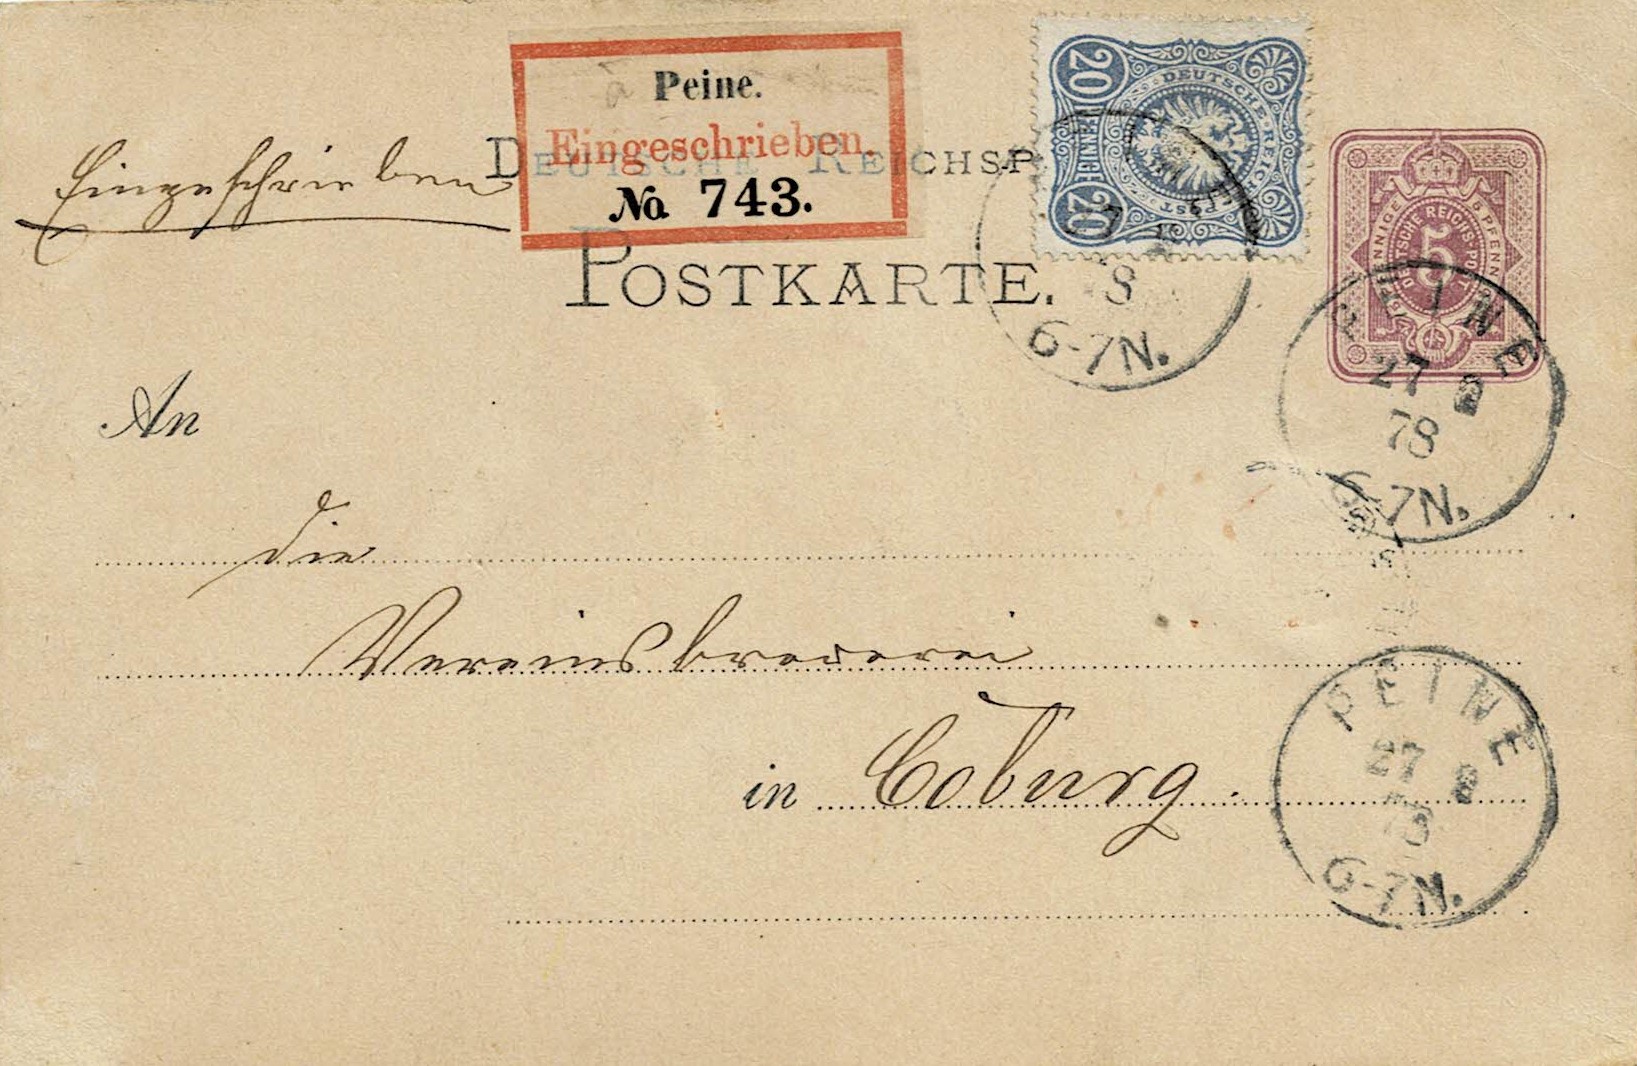 Peine.
Eingeschrieben.
No. 743.
Eingeschrieben
DEUTSCHE REICHSP
POSTKARTE.
20 PFENNIGE 20
DEUTSCHE REICHS-POST
5 PFENNIGE 5 PFENNIGE
DEUTSCHE REICHS-POST
5
8
6-7N.
PEINE
27 9
78
6-7N.
An
die
Vereinsbrauerei
in Coburg.
PEINE
27
78
6-7N.